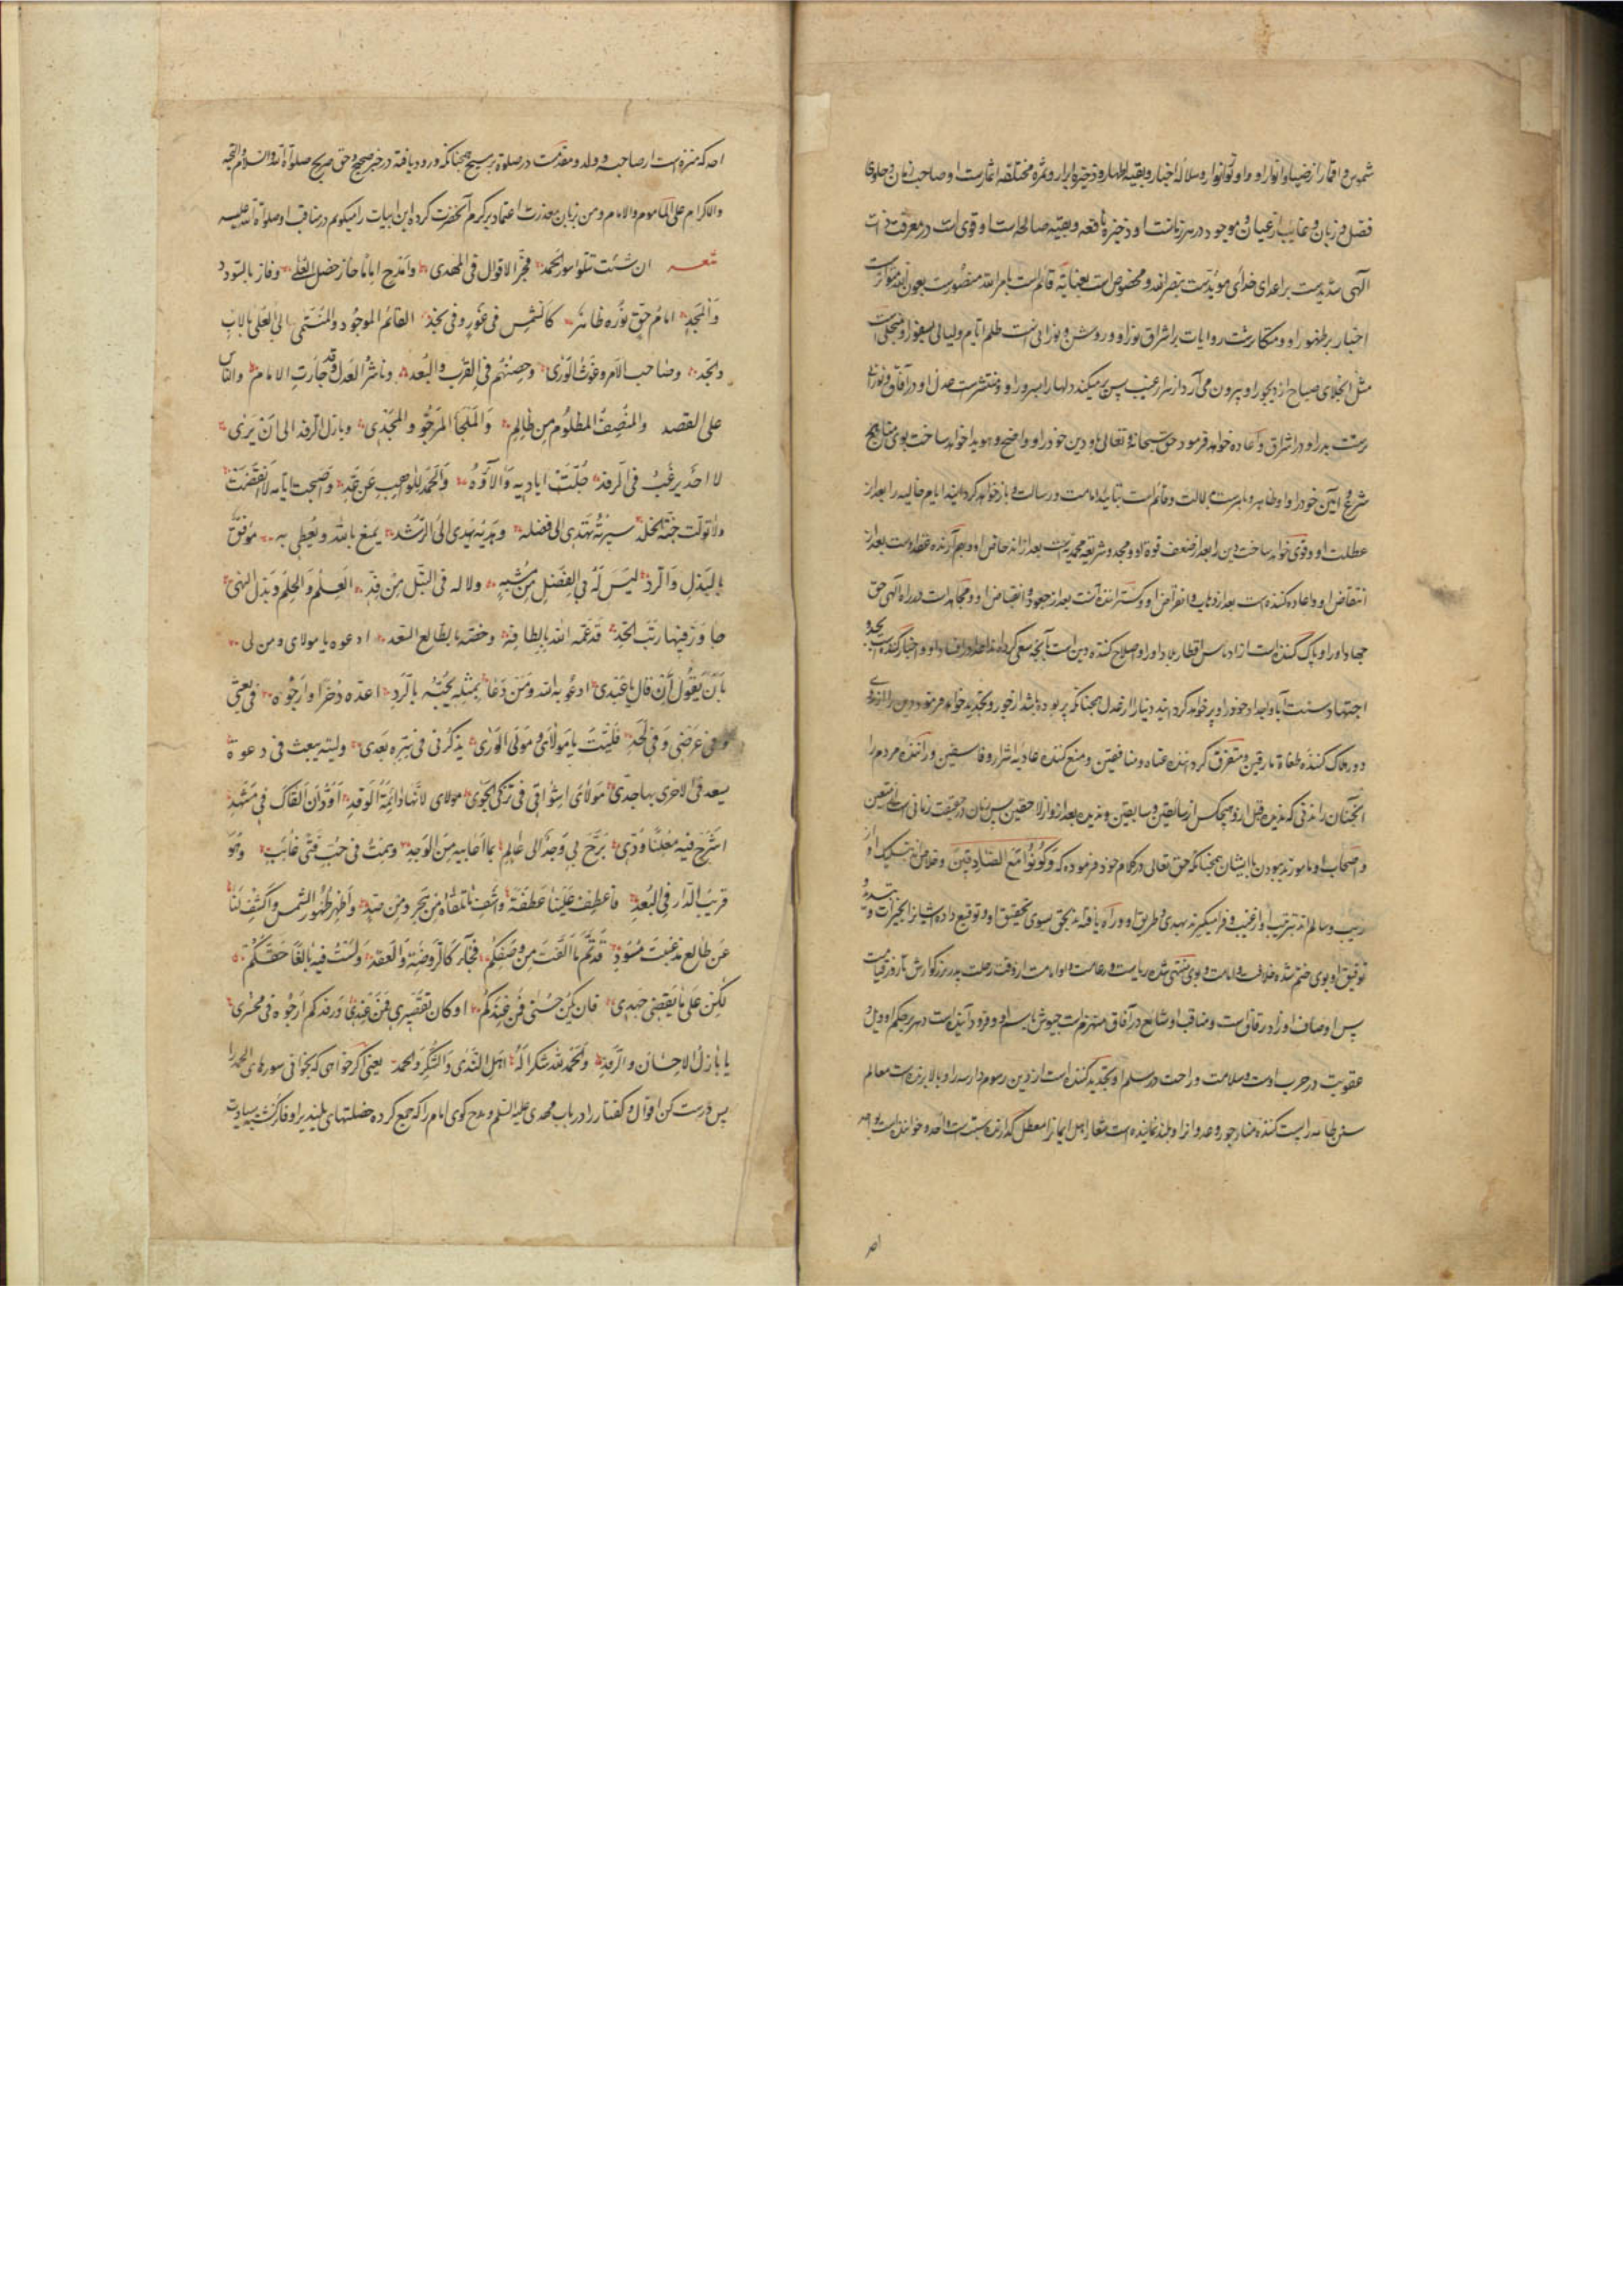 شموس و اقمار از ضیا و انوار او و او تو انوار و سلاله اخیار و بقیه اطهار و ذخیره ابرار و ثمره اثمارست او صاحب زمان و حاوی
فضل و زبان و غایب از عیان و موجود در هر زمانست او ذخیره نافعه و بقیه صالحه است او قوی است در معرفت ذات
الهی شدیدست بر اعدای خدای مؤیدست بنصر الله و مخصوص است بعنایة قائم است بامر الله منصورست بعون الله متواترست
اخبار بر ظهور او و متکاثرست روایات بر اشراق نور او و روشن و نورانی است ظلم ایام و لیالی بسفور او منجلی است
مثل انجلای صباح از دیجور او بیرون می آرد از سر غیب پس پر میکند دلها را بسرور او و منتشرست عدل او در آفاق
بدر او در اشراق و اعاده خواهد فرمود حق سبحانه و تعالی باو دین خود را و واضح و هویدا خواهد ساخت بوی مناهج
شرع و آیین خود را و ظاهر و قائم است بنیابت امامت و رسالت و باز خواهد کرد ایام خالیه را بعد از
عطلت او و قوی خواهد ساخت دین را بعد از ضعف قوة او و مجدد شریعه محمدیه است بعد از
انتقاض او و اعاده کننده است بعد از ذهاب و انقراض او و گستراننده آنست بعد از جعود و انقباض او و مجاهد است در راه الهی حق
جهاد او را و پاک کننده است از ادناس اقطار بلاد او را و اصلاح کننده دین است آنچه سعی کرده اند اعدا در افساد او و احیا کننده است بجد و
اجتهاد سنت آبا و اجداد خود را و پر خواهد کرد دنیا را از عدل همچنانکه پر بوده باشد از جور و تجدید خواهد فرمود دین را
دور و هلاک کننده طغاة مارقین و متفرق گرداننده عتاة و منافقین و منع کننده عادیه اشرار و فاسقین و راننده مردم را
آنچنان راندنی که ندیدند قبل از و هیچکس از سابقین و سابقین و ندیدند بعد از و از لاحقین پس زمان در حقیقت زمانی است از متقین
و اصحاب او مامورند ببودن با ایشان همچنانکه حق تعالی در کلام خود فرموده که وَکُونُوا مَعَ الصَّادِقِینَ و خلاص
ریب و سالم اند بترتیب او از غیب و فرا میگیرند بهدی و طریق او و راه یافته اند بحق بسوی تحقیق او و توقیع داده ایشانرا بخیرات
توفیق او بوی ختم شده خلافت و امامت و بوی منتهی شده ریاست و زعامت و او امامت از وقت رحلت پدر بزرگوارش تا روز قیامت
پس اوصاف او زاد رفاق است و مناقب او شایع در آفاق منهزم است جیوش باسم او و فرود آینده است دهر بحکم او ویل و
عقوبت در حرب اوست و سلامت و راحت در سلم او تجدید کننده است از دین رسوم دارسه را و بالا برنده است معالم
سنن طامسه را پست کننده منار جور و عدوانرا و بلند نماینده است شعار اهل ایمانرا معطل گذارنده سبت و احد خواننده است
احد
احد که منزه است از صاحبه و ولد و مقدمست در صلوة بر مسیح همچنانکه ورود یافته در خبر صحیح و حق صریح صلوة الله و السلام و التحیة
والاکرام علی المأموم والامام و من بزبان معذرت اعتماد بر کرم آنحضرت کرده این ابیات را میگویم در مناقب او صلوة الله علیه
شعر ان شئت تتلوا سور الحمد فجز الاقوال فی المهدی وامدح اماما حاز خصل العلی وفاز بالسودد
والمجد امام حق نوره ظاهر کالشمس فی غور وفی نجد القائم الموجود والمنتمی الی العلی بالاب
والجد وصاحب الامر وغوث الوری وحصنهم فی القرب والبعد وناشر العدل وقد جارت الامام والناس
علی القصد والمنصف المظلوم من ظالم والملجا المرجو والمجدی وباذل الرفد الی ان یری
لا احد یرغب فی الرفد جلت ایادیه والآؤه والحمد للواهب عن وَاَصبحت ایامه لا انقضت
ولا تولت جنة الخلد سیرته تهدی الی فضله وهدیه یهدی الی الرشد یمنع بالله ویعطی به موفق
بالبذل والرد لیس له فی الفضل من مشبه ولا له فی النبل من ند العلم والحلم وبذل الندی
جاوز فیها رتب الحد قد عمه الله بالطافه وخصه بطالع السعد ادعوه یا مولای ومن لی
بان یقول ان قال یا عبدی ادعو به الله ومن دعا بمثله یجبه بالرد اعده ذخرا وارجوه فی بعثی
وفی عرضی وفی لحدی فلیت یا مولای ومولی الوری یذکرنی فی سره بعدی ولیته یبعث فی دعوة
یسعد فی الاخری بها جدی مولای اشواقی فی تذکی الجوی مولای لانها دائمة الوقد اود ان القاک فی مشهد
اشرح فیه معلنا ودی برح بی وجد الی عالم بما اعانیه من الوجد وهمت فی حب فتی غائب وهو
قریب الدار فی البعد فاعطف علینا عطفة واشف ما نلقاه من هجر ومن صد واظهر ظهور الشمس واکشف لنا
عن طالع مذ غبت مسود قد تم ما الفت من وصفکم فجاء کالروضة والعقد ولست فیه بالغا حقکم
لکن علی ما یقتضی جهدی فان یکن حسنی فمن عندکم او کان تقصیری فمن عندی ورفدکم ارجوه فی محشری
یا باذل الاحسان والرفد والحمد لله شکرا له اهل الندی والشکر والحمد یعنی اگر خواهی که بخوانی سورهای الحمد را
پس درست کن اقوال و گفتار را در باب مهدی علیه السلم و مدح گوی امام را که جمع کرده خصلتهای بلند را و فایز گشته بسیادت